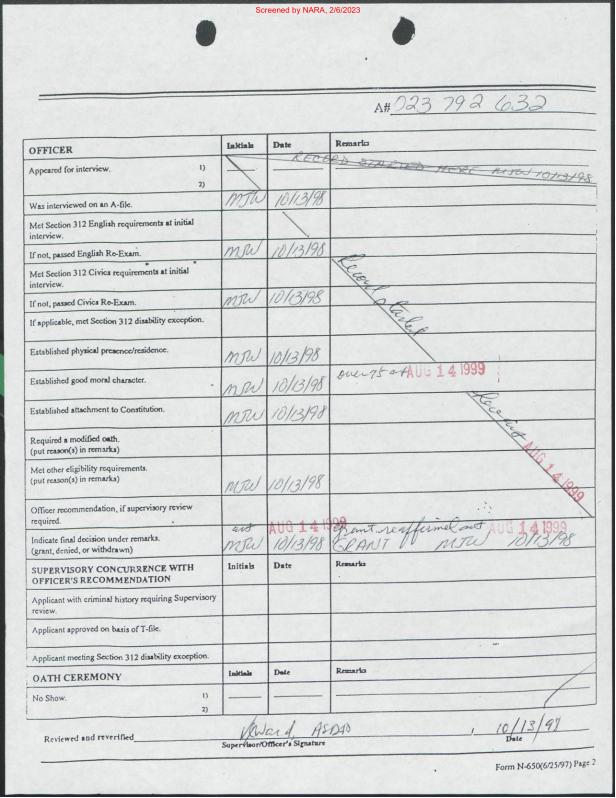 Screened by NARA, 2/6/2023
A# 023 792 632
OFFICER Initials Date Remarks
Appeared for interview. 1)
2)
RECORD STARTED HERE MJW 10/13/98
Was interviewed on an A-file. MJW 10/13/98
Met Section 312 English requirements at initial
interview.
If not, passed English Re-Exam. MJW 10/13/98
Met Section 312 Civics requirements at initial
interview.
Record started
If not, passed Civics Re-Exam. MJW 10/13/98
If applicable, met Section 312 disability exception.
Established physical presence/residence. MJW 10/13/98
Established good moral character. MJW 10/13/98 over 75 AUG 14 1999
Established attachment to Constitution. MJW 10/13/98
AUG 14 1999
Required a modified oath.
(put reason(s) in remarks)
Met other eligibility requirements.
(put reason(s) in remarks) MJW 10/13/98
Officer recommendation, if supervisory review
required.
AUG 14 1999 grant reaffirmed AUG 14 1999
Indicate final decision under remarks.
(grant, denied, or withdrawn) MJW 10/13/98 GRANT MJW 10/13/98
SUPERVISORY CONCURRENCE WITH Initials Date Remarks
OFFICER'S RECOMMENDATION
Applicant with criminal history requiring Supervisory
review.
Applicant approved on basis of T-file.
Applicant meeting Section 312 disability exception.
OATH CEREMONY Initials Date Remarks
No Show. 1)
2)
Reviewed and reverified Ward, ASDAO 10/13/98
Supervisor/Officer's Signature Date
Form N-650(6/25/97) Page 2